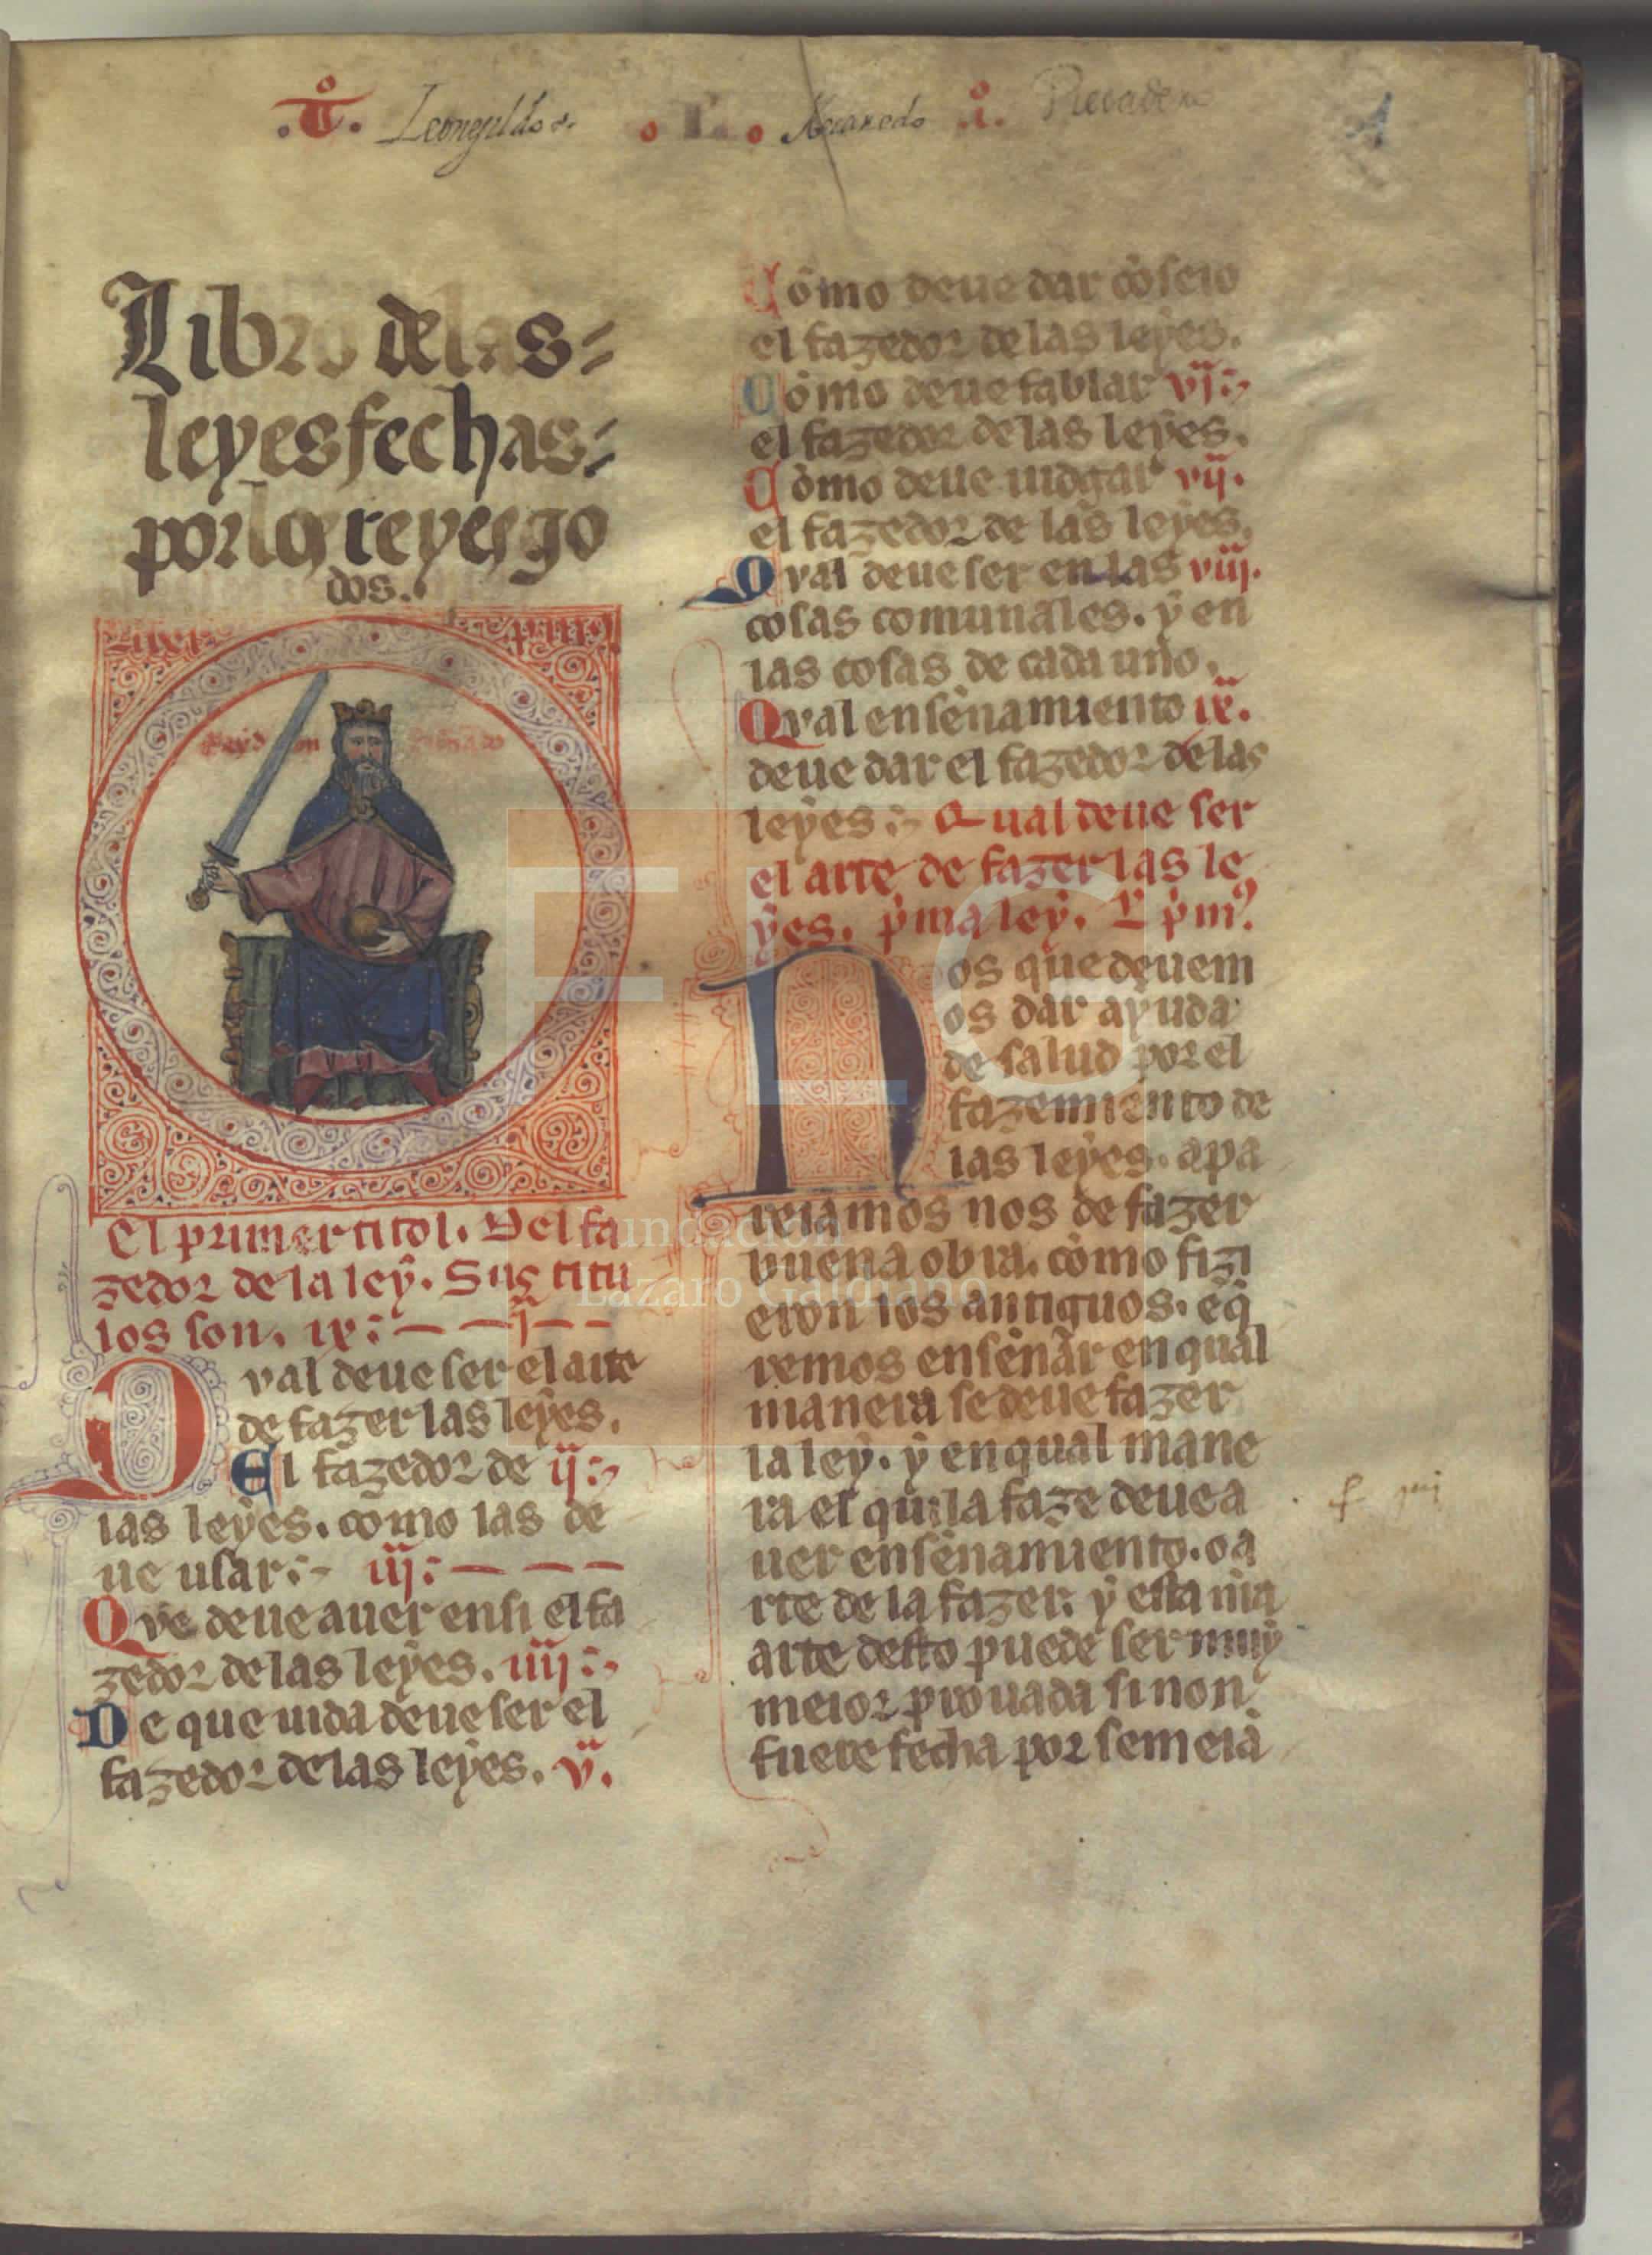 .T. Leonegildo . L . Recaredo .I.
Libro delas
leyes fechas
por los reyes go
dos.
Liber prim9
Rey don
El primer titol. Del fa
zedor de la ley. Sus titu
los son. ix: j
Qval deue ser el arte
de fazer las leyes.
El fazedor de ij:
las leyes. como las de
ue usar: iij:
Qve deue auer en si el fa
zedor de las leyes. iiij:
De que uida deue ser el
fazedor de las leyes. v.
Como deue dar cõseio
el fazedor de las leyes.
Como deue fablar vj:
el fazedor de las leyes.
Como deue iudgar vij.
el fazedor de las leyes.
Qval deue ser en las viij.
cosas comunales. y en
las cosas de cada uno.
Qval ensenamiento ix.
deue dar el fazedor de las
leyes: Qual deue ser
el arte de fazer las le
yes. p̃ma ley. L p̃m9.
Nos que deuem
os dar ayuda
de salud por el
fazemiento de
las leyes. apa
reiamos nos de fazer
buena obra. como fizi
eron los antiguos. e q̃
remos ensenar en qual
manera se deue fazer
la ley. y en qual mane
ra el qui la faze deue a
uer ensenamiento. o a
rte de la fazer. y esta nr̃a
arte desto puede ser muy
meior prouada si non
fuere fecha por semeiã
FLG
Fundación
Lázaro Galdiano